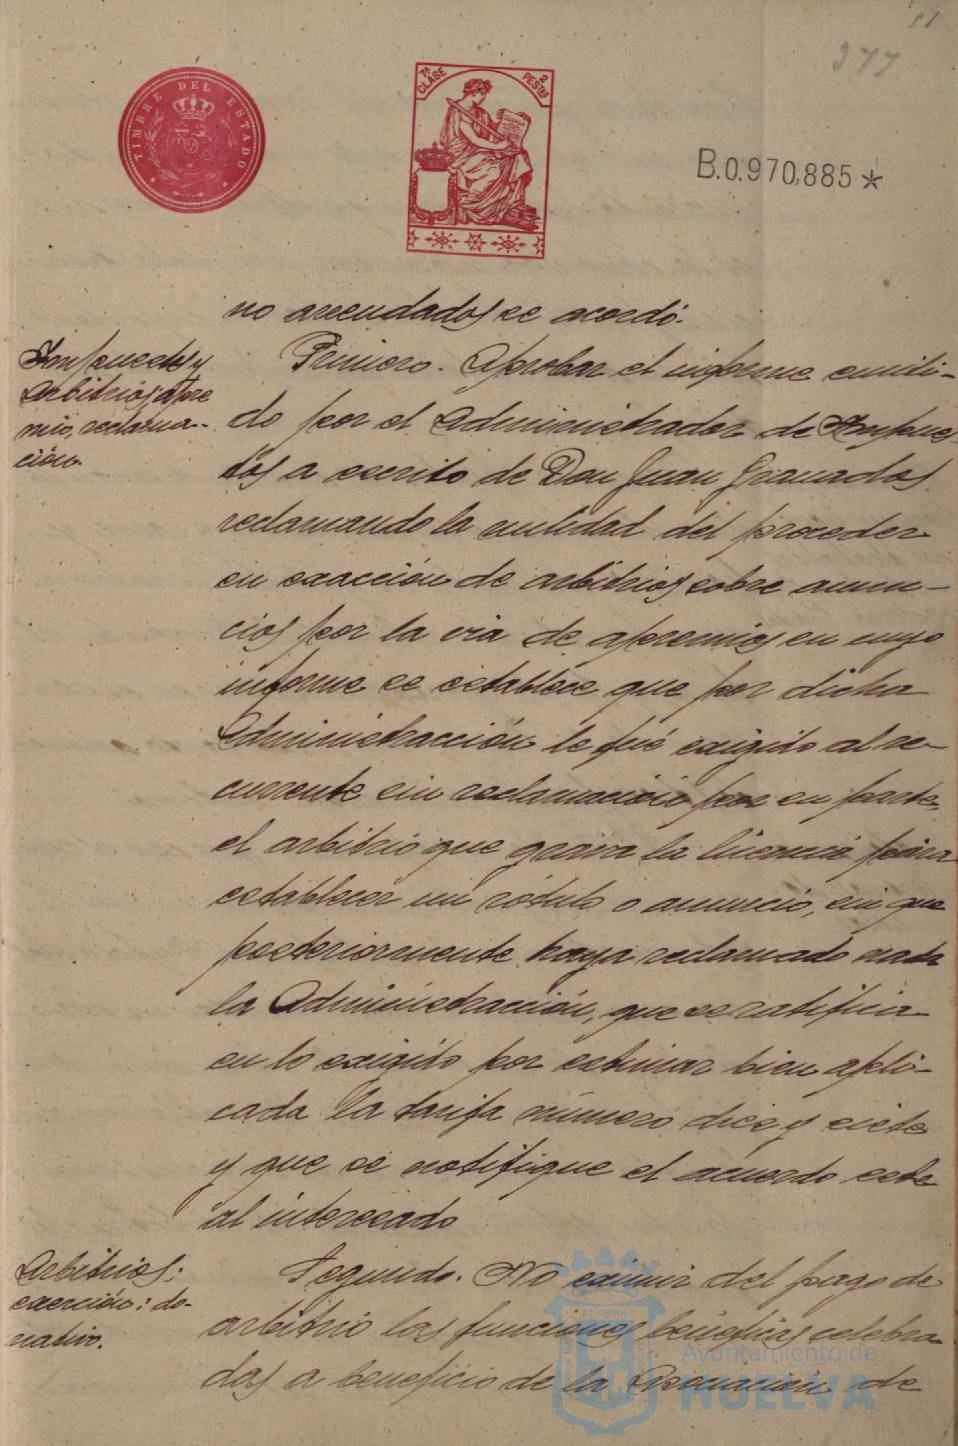 51
377
TIMBRE DEL ESTADO
7ª CLASE
2 PESTAS
B.0.970,885*
no arrendados se acordó.
Impuestos y
arbitrios, apre
mio, reclama-
ción.
Primero. Aprobar el informe emiti-
do por el Administrador de Impues-
tos a escrito de Don Juan Granados
reclamando la nulidad del proceder
en exacción de arbitrios sobre anun-
cios por la via de apremios en cuyo
informe se establece que por dicha
Administracción le fué exigido al re-
currente sin reclamación por su parte,
el arbitrio que grava la licencia para
establecer un rótulo o anuncio, sin que
posteriormente haya reclamado nada
la Administracción, que se ratifica
en lo exigido por estimar bien apli-
cada la tarifa número diez y siete
y que se notifique el acuerdo este
al interesado
Arbitrios;
exención: do-
nativo.
Segundo. No eximir del pago de
arbitrio las funciones benéficas celebra
das a beneficio de la Asociación de
Ayuntamiento de
HUELVA